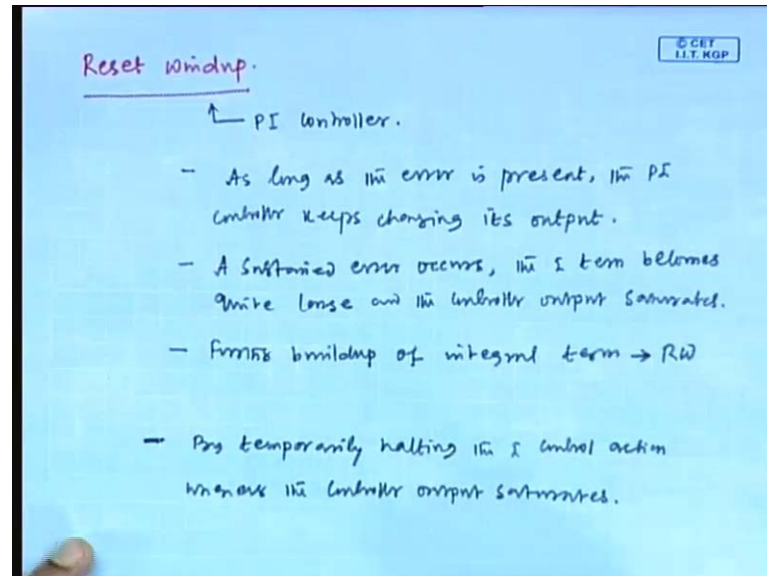 Reset windup.
© CET
I.I.T. KGP
PI controller.
- As long as the error is present, the PI
controller keeps changing its output.
- A sustained error occurs, the I term becomes
quite large and the controller output saturates.
- Further buildup of integral term → RW
- By temporarily halting the I control action
whenever the controller output saturates.